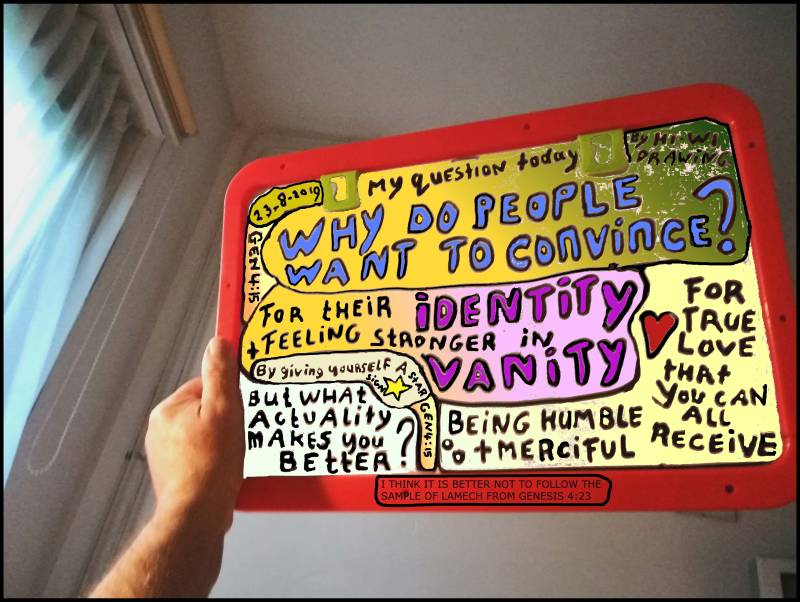 My question today
By HI WI
DRAWING
23-8-2019
WHY DO PEOPLE
WANT TO CONVINCE?
GEN 4:15
FOR THEIR IDENTITY
+ FEELING STRONGER IN
VANITY
By giving yourself A STAR
SIGN
GEN 4:15
But WHAT
ACTUALITY
MAKES you
BETTER?
BEING HUMBLE
+ MERCIFUL
FOR
TRUE
LOVE
that
YOU CAN
ALL
RECEIVE
I THINK IT IS BETTER NOT TO FOLLOW THE
SAMPLE OF LAMECH FROM GENESIS 4:23